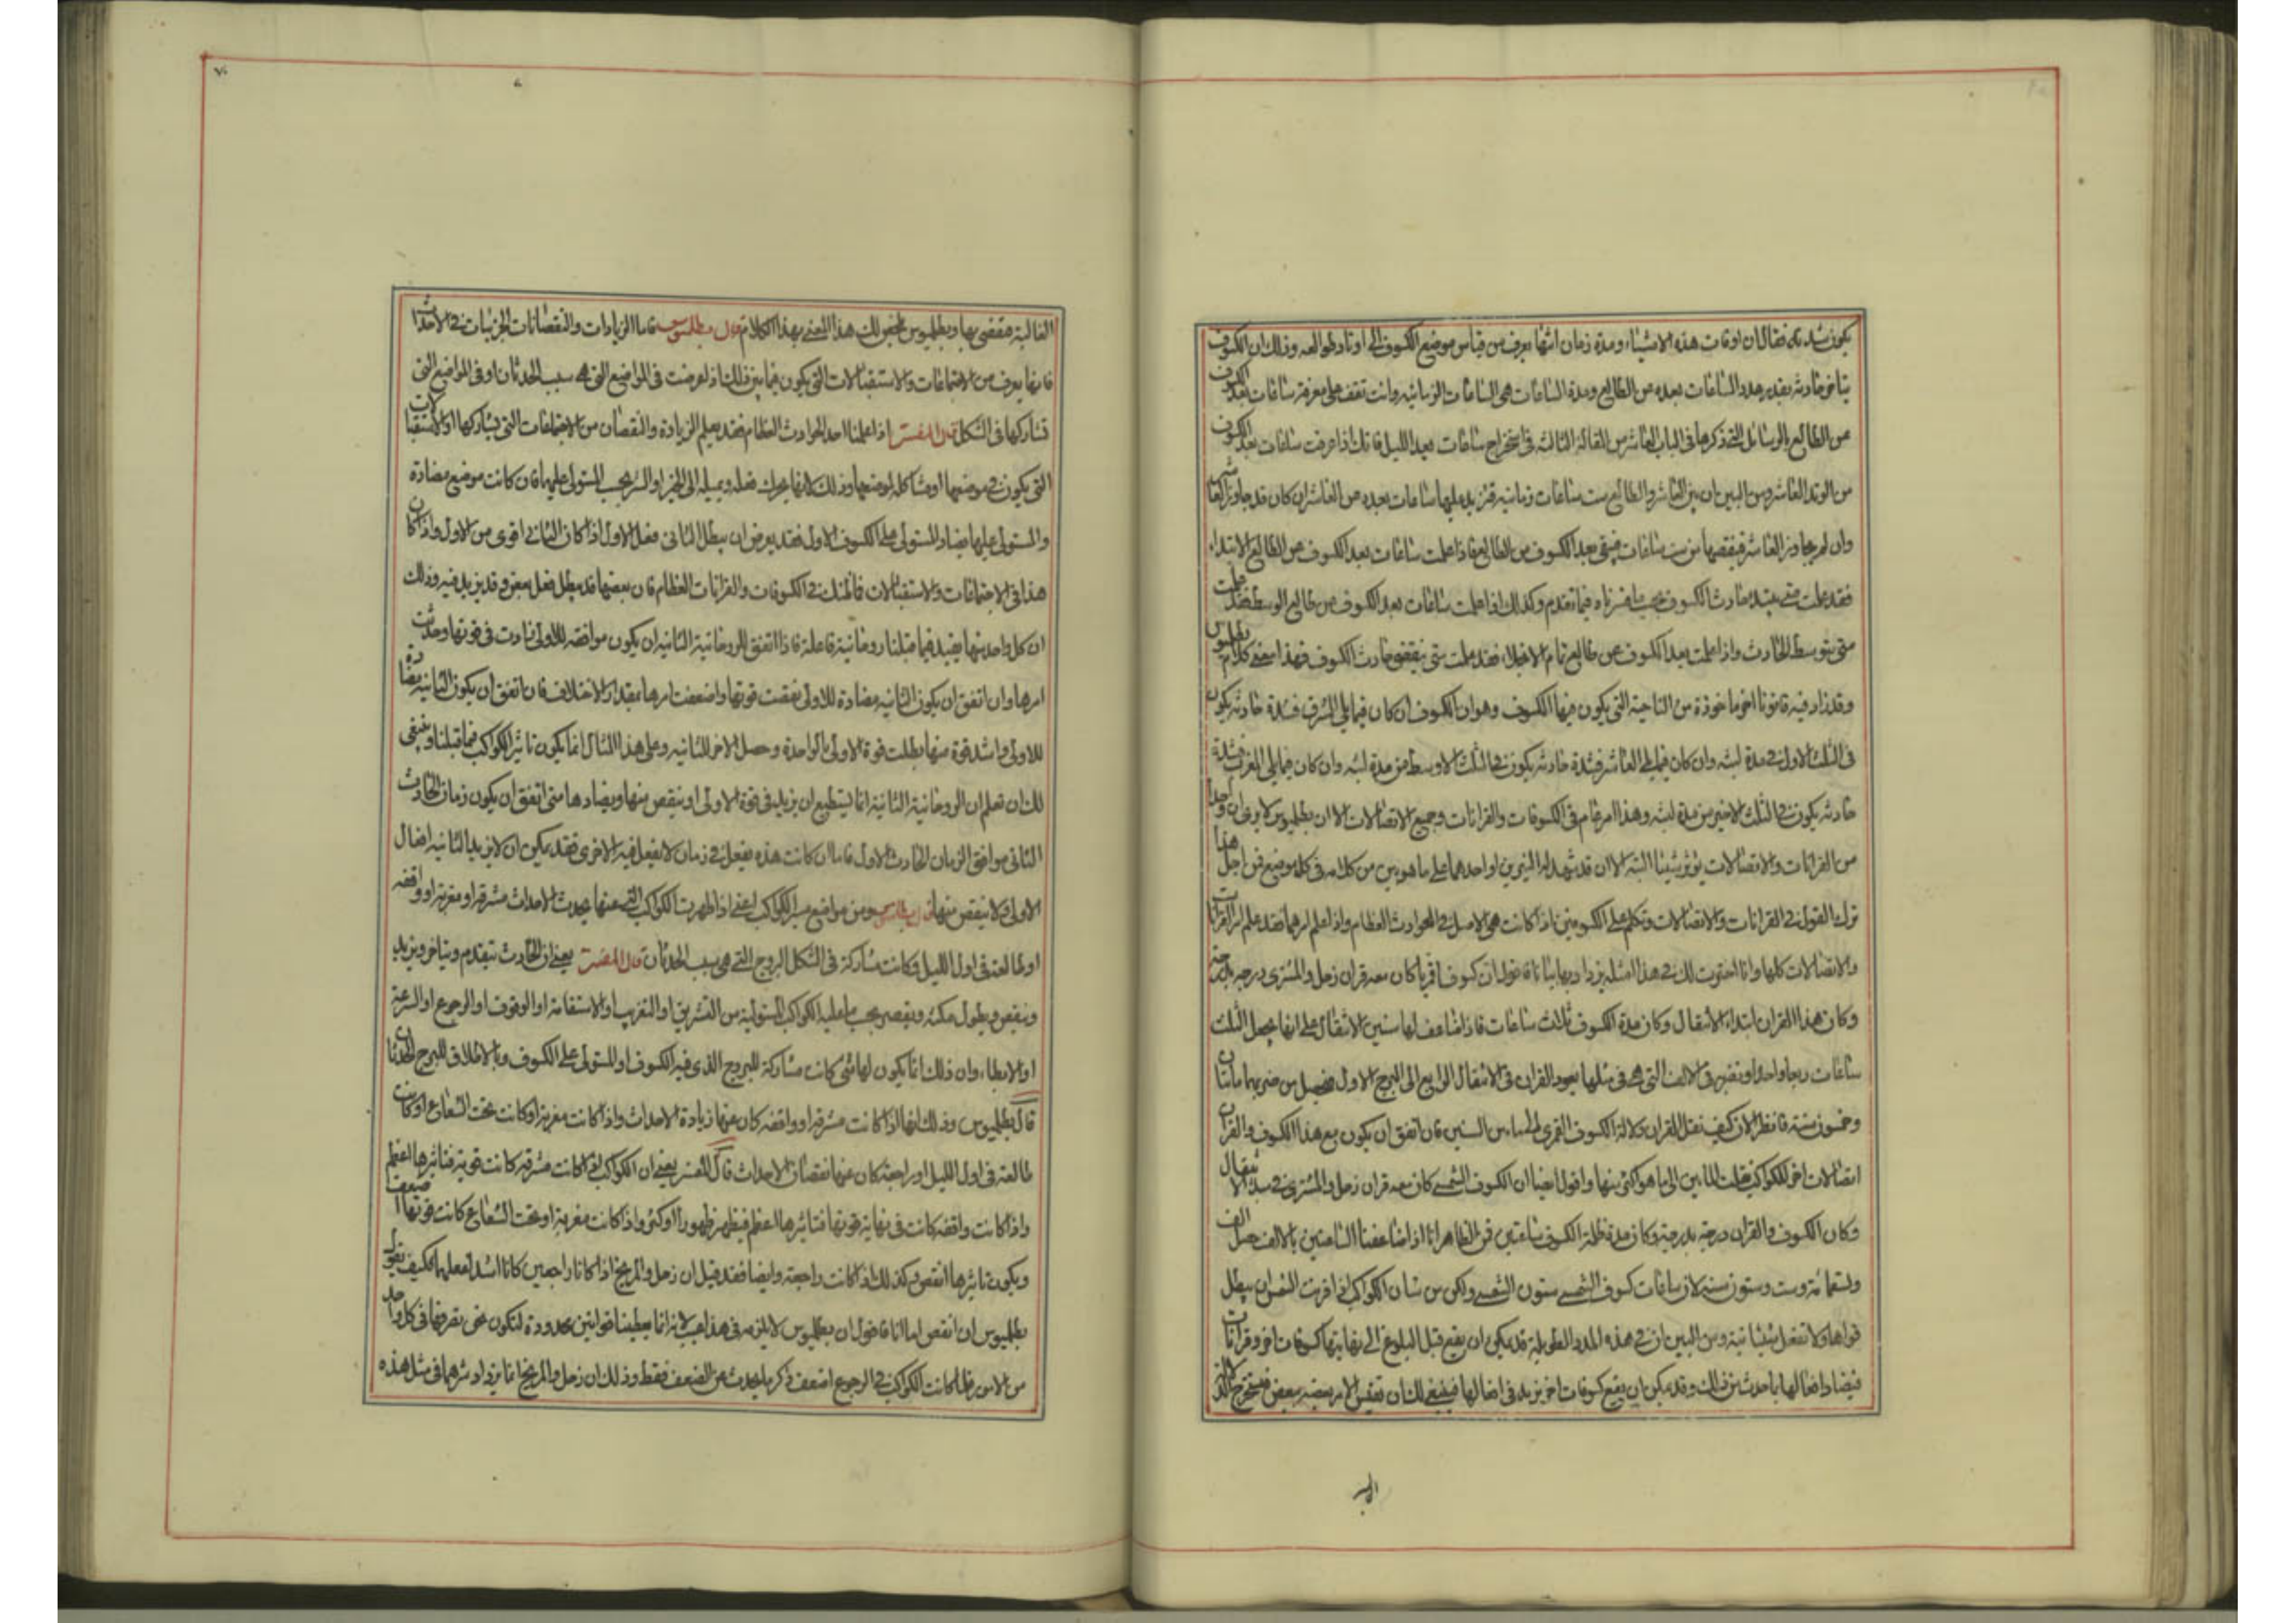 يكون شدته فقال ان اوقات هذه الاشياء ومدة زمان اثرها يعرف من قياس موضع الكسوف الى اوتاد طوالعه وذلك ان الكسوف
يتاخر حادثه بقدر عدد الساعات بعده من الطالع ومدة الساعات هي الساعات الزمانيه وانت تقف على معرفة ساعات بعد الكسوف
من الطالع بالوسائل التي ذكرها في الباب العاشر من المقالة الثالثه في استخراج ساعات بعد الليل فانك اذا عرفت ساعات بعد الكسوف
من الوتد العاشر ومن البين ان بين العاشر والطالع ست ساعات زمانيه فتزيد عليها ساعات بعده من العاشر ان كان قد جاوز العاشر
وان لم يجاوز العاشر فينقصها من ست ساعات فيبقى بعد الكسوف من الطالع فاذا علمت ساعات بعد الكسوف عن الطالع الابتداء
فقد علمت متى يبتدء حادث الكسوف بحسب ما فسرناه فيما تقدم وكذلك اذا علمت ساعات بعد الكسوف من طالع الوسط فقد علمت
متى يتوسط الحادث واذا علمت بعد الكسوف عن طالع تمام الانجلاء فقد علمت متى ينقضي حادث الكسوف فهذا معنى كلام بطلميوس
وقد زاد فيه قانونا اخر ماخوذة من الناحية التي يكون فيها الكسوف وهو ان الكسوف ان كان فيما يلي المشرق فشدة حادثه يكون
في الثلث الاول في مدة لبثه وان كان فيما يلي العاشر فشدة حادثه يكون في الثلث الاوسط من مدة لبثه وان كان فيما يلي المغرب فشدة
حادثه يكون في الثلث الاخير من مدة لبثه وهذا امر عام في الكسوفات والقرانات وجميع الاتصالات الا ان بطلميوس لا يرى ان واحدا
من القرانات والاتصالات يوثر شيئا البته الا ان قد شهد له النيرين او احدهما على ما هو بين من كلامه في كل موضع فمن اجل هذا
ترك القول في القرانات والاتصالات وتكلم على الكسوفين اذ كانت هي الاصل في الحوادث العظام واذا علم امرهما فقد علم امر القرانات
والاتصالات كلها وانا احتويت لك في هذا امثله يزداد بها بيانا فاقول ان كسوفا قمريا كان معه قران زحل والمشتري درجه بدرجة
وكان هذا القران ابتداء الانتقال وكان مدة الكسوف ثلاث ساعات فاذا ضاعف لها سنين الانتقال على انها يجعل الثلث
ساعات ربعا واحدا ونضربه في الالف التي هي في مثلها يعود القران في الانتقال الرابع الى البرج الاول فيحصل من ضربهما مائتان
وخمسون سنة فانظر الان كيف نقل القران دلالة الكسوف القمري الى المئاين السنين فان اتفق ان يكون مع هذا الكسوف والقران
اتصالات اخر للكواكب نقلت المائتين الى ما هو اكثر منها واقول ايضا ان الكسوف الشمسي كان معه قران زحل والمشتري في مبدء الانتقال
وكان الكسوف والقران درجة بدرجة وكان مدة ظلمة الكسوف ساعتين فمن الظاهر انا اذا ضاعفنا الساعتين بالالف حصل الف
وتسعمائة وست وستون سنه لان ساعات كسوف الشمس سنون الشمس ولكن من شان الكواكب اذا قربت الشمس ان يبطل
قواها ولا تفعل شيئا نيه ومن البين ان في هذه المدد الطويلة قد يمكن ان يقع قبل البلوغ الى نهايتها كسوفات اخر وقرانات
فيضاد افعالها ما حدث من ذلك وقد يمكن ان يقع كسوفات اخر يزيد في افعالها فينبغي لك ان تقيس الامر بعضه ببعض فيستخرج
الغالبة فتقضي بها وبطلميوس يلخص لك هذا المعنى بهذا الكلام قال بطلميوس فاما الزيادات والنقصانات الجزئيات في الاحداث
فانها يعرف من الاجتماعات والاستقبالات التي يكون فيما بين ذلك اذا عرضت في المواضع التي هي سبب الحدثان او في المواضع التي
تشاركها في الشكل قال المفسر اذا علمنا احد الحوادث العظام فقد يعلم الزيادة والنقصان من الاجتماعات التي يشاركها او الاستقبالات
التي يكون في موضعها او مشاكلة لموضعها وذلك لانها يحرك فعله ويميله الى الخير او الشر بحسب المستولى عليها فان كانت موضع مضادة
والمستولي عليها يضاد المستولى على الكسوف الاول فقد يعرض ان يبطل الثاني فعل الاول اذا كان الثاني اقوى من الاول واذا كان
هذا في الاجتماعات والاستقبالات فالمثل في الكسوفات والقرانات العظام فان بعضها قد يبطل فعل بعض وقد يزيد فيه وذلك
ان كل واحد منها يفيد فيما قبلنا روحانية فاعلة فاذا اتفق الروحانية الثانيه ان يكون موافقه للاولى زادت في قوتها وحدثت
امرها وان اتفق ان يكون الثانيه مضادة للاولى نقصت قوتها واضعفت امرها بمقدار الاختلاف فان اتفق ان يكون الثانيه مضادة
للاولى واشد قوة منها بطلت قوة الاولى بالواحدة وحصل الامر للثانيه وعلى هذا المثال انما يكون تاثير الكواكب فيما قبلنا وينبغي
لك ان تعلم ان الروحانية الثانية انما يستطيع ان يزيد في قوة الاولى او ينقص منها ويضادها متى اتفق ان يكون زمان الحادث
الثاني موافق الزمان الحادث الاول فاما ان كانت هذه يفعل في زمان لا يفعل فيه الاخرى فقد يمكن ان لا يزيد الثانيه افعال
الاولى ولا ينقص منها قال بطلميوس ومن مواضع سير الكواكب اعني اذا ظهرت الكواكب التي عنها يحدث الاحداث مشرقة او مغربة او واقفه
او طالعة في اول الليل وكانت مشاركة في الشكل البروج التي هي سبب الحدثان قال المفسر يعني ان الحادث يتقدم ويتاخر ويزيد
وينقص ويطول مكثه ويقصر بحسب ما عليه الكواكب المستوليه من التشريق او التغريب او الاستقامة او الوقوف او الرجوع او السرعة
او الابطاء وان ذلك انما يكون لها متى كانت مشاركة للبروج الذي فيه الكسوف او المستولى على الكسوف وبالاطلاق للبروج الحدثان
قال بطلميوس وذلك انها اذا كانت مشرقة او واقفه كان عنها زيادة الاحداث واذا كانت مغربة او كانت تحت الشعاع او كانت
طالعة في اول الليل او راجعة كان عنها نقصان الاحداث قال المفسر يعني ان الكواكب اذا كانت مشرقه كانت قويه فتاثيرها اعظم
واذا كانت واقفه كانت في نهاية قوتها فتاثيرها اعظم فيظهر ظهورا اوكد واذا كانت مغربة او تحت الشعاع كانت قوتها ضعيف
ويكون تاثيرها انقص وكذلك اذا كانت راجعة وايضا فقد قيل ان زحل والمريخ اذا كانا راجعين كانا اشد لفعلهما فكيف يقول
بطلميوس ان انقص اما انا فاقول ان بطلميوس لا يلزمه في هذا عيب لانه انما يعطينا قوانين محدودة لتكون نحن نعرفها في كل واحد
من الامور فلما كانت الكواكب في الرجوع اضعف ذكر ما يحدث عن الضعف فقط وذلك ان زحل والمريخ انما يزداد شرهما في مثل هذه